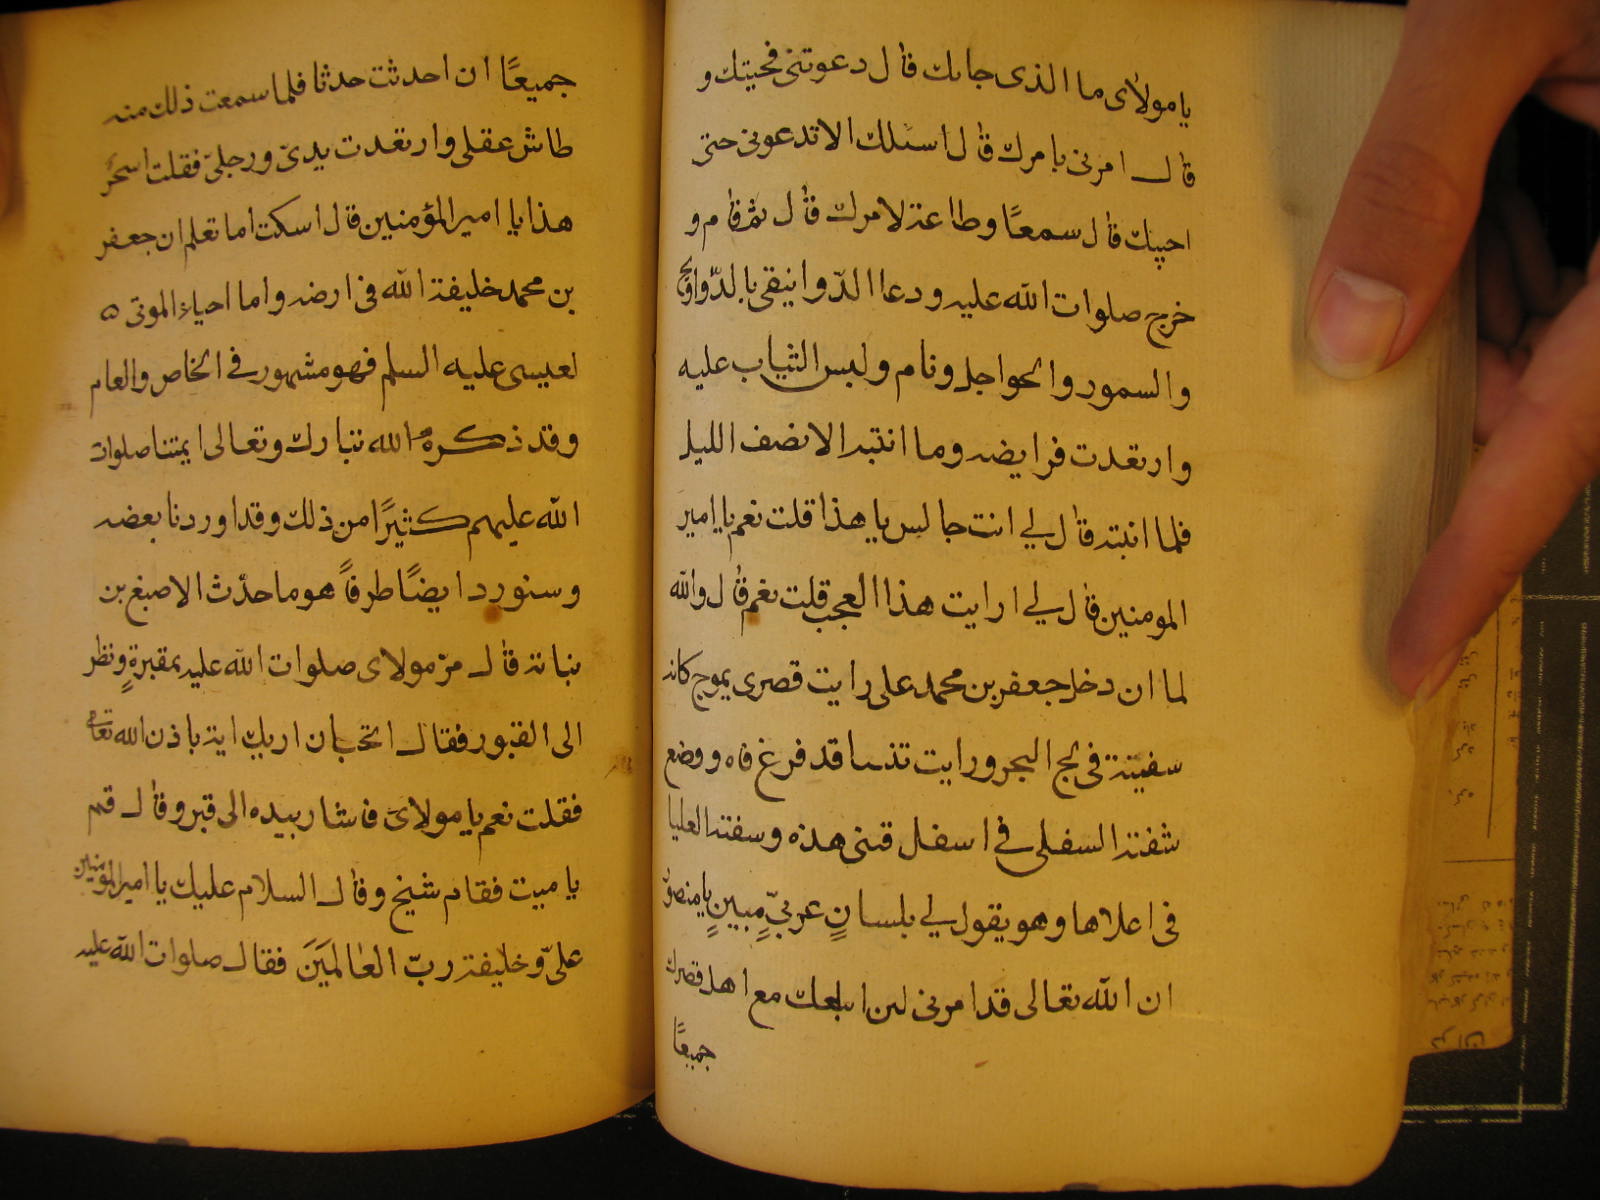 يا مولاى ما الذى جابك قال دعوتنى فجيتك و
قال امرنى بامرك قال اسئلك الا تدعونى حتى
اجيبك قال سمعًا وطاعة لامرك قال ثم قام و
خرج صلوات الله عليه ودعا الدّوانيقى بالدّواويج
والسمور والحواجل ونام ولبس الثياب عليه
وارتعدت فرايضه وما انتبه الا نصف الليل
فلما انتبه قال لي انت جالس يا هذا قلت نعم يا امير
المومنين قال لي ارايت هذا العجب قلت نعم قال والله
لما ان دخل جعفر بن محمد على رايت قصرى يموج كانه
سفينة فى لجج البحر ورايت تنينا قد فرغ فاه ووضع
شفته السفلى في اسفل قبتى هذه وسفته العليا
فى اعلاها وهو يقول لي بلسانٍ عربىٍّ مبينٍ يا منصور
ان الله تعالى قد امرنى لىن ابلعك مع اهل قصرك
جميعًا
جميعًا ان احدثت حدثا فلما سمعت ذلك منه
طاش عقلى وارتعدت يدىّ ورجلىّ فقلت اسحر
هذا يا امير المؤمنين قال اسكت اما تعلم ان جعفر
بن محمد خليفة الله فى ارضه واما احياء الموتى ه
لعيسى عليه السلم فهو مشهور في الخاص والعام
وقد ذكره الله تبارك وتعالى ايمتنا صلوات
الله عليهم كثيرًا من ذلك وقد اوردنا بعضه
وسنورد ايضًا طرفاً هو ما حدّث الاصبغ بن
نباتة قال مرّ مولاى صلوات الله عليه بمقبرةٍ ونظر
الى القبور فقال اتحب ان اريك اية باذن الله تعالى
فقلت نعم يا مولاى فاشار بيده الى قبر وقال قم
يا ميت فقام شيخ وقال السلام عليك يا امير المؤمنين
علىّ وخليفة ربّ العالمَينَ فقال صلوات الله عليه